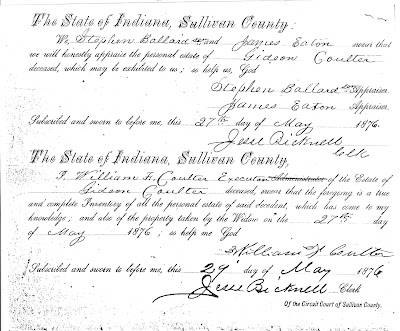 The State of Indiana, Sullivan County:
We, Stephen Ballard and James Eaton swear that
we will honestly appraise the personal estate of Gideon Coulter
deceased, which may be exhibited to us; so help us, God
Stephen Ballard Appraiser.
James Eaton Appraiser.
Subscribed and sworn to before me, this 27th day of May 1876.
Jesse Bicknell
Clk
The State of Indiana, Sullivan County,
I, William F. Coulter Executor Administrator of the Estate of
Gideon Coulter deceased, swear that the foregoing is a true
and complete Inventory of all the personal estate of said decedent, which has come to my
knowledge; and also of the property taken by the Widow on the 27th day
of May 1876; so help me God
William F Coulter
Subscribed and sworn to before me, this 29 day of May 1876
Jesse Bicknell Clerk
Of the Circuit Court of Sullivan County.